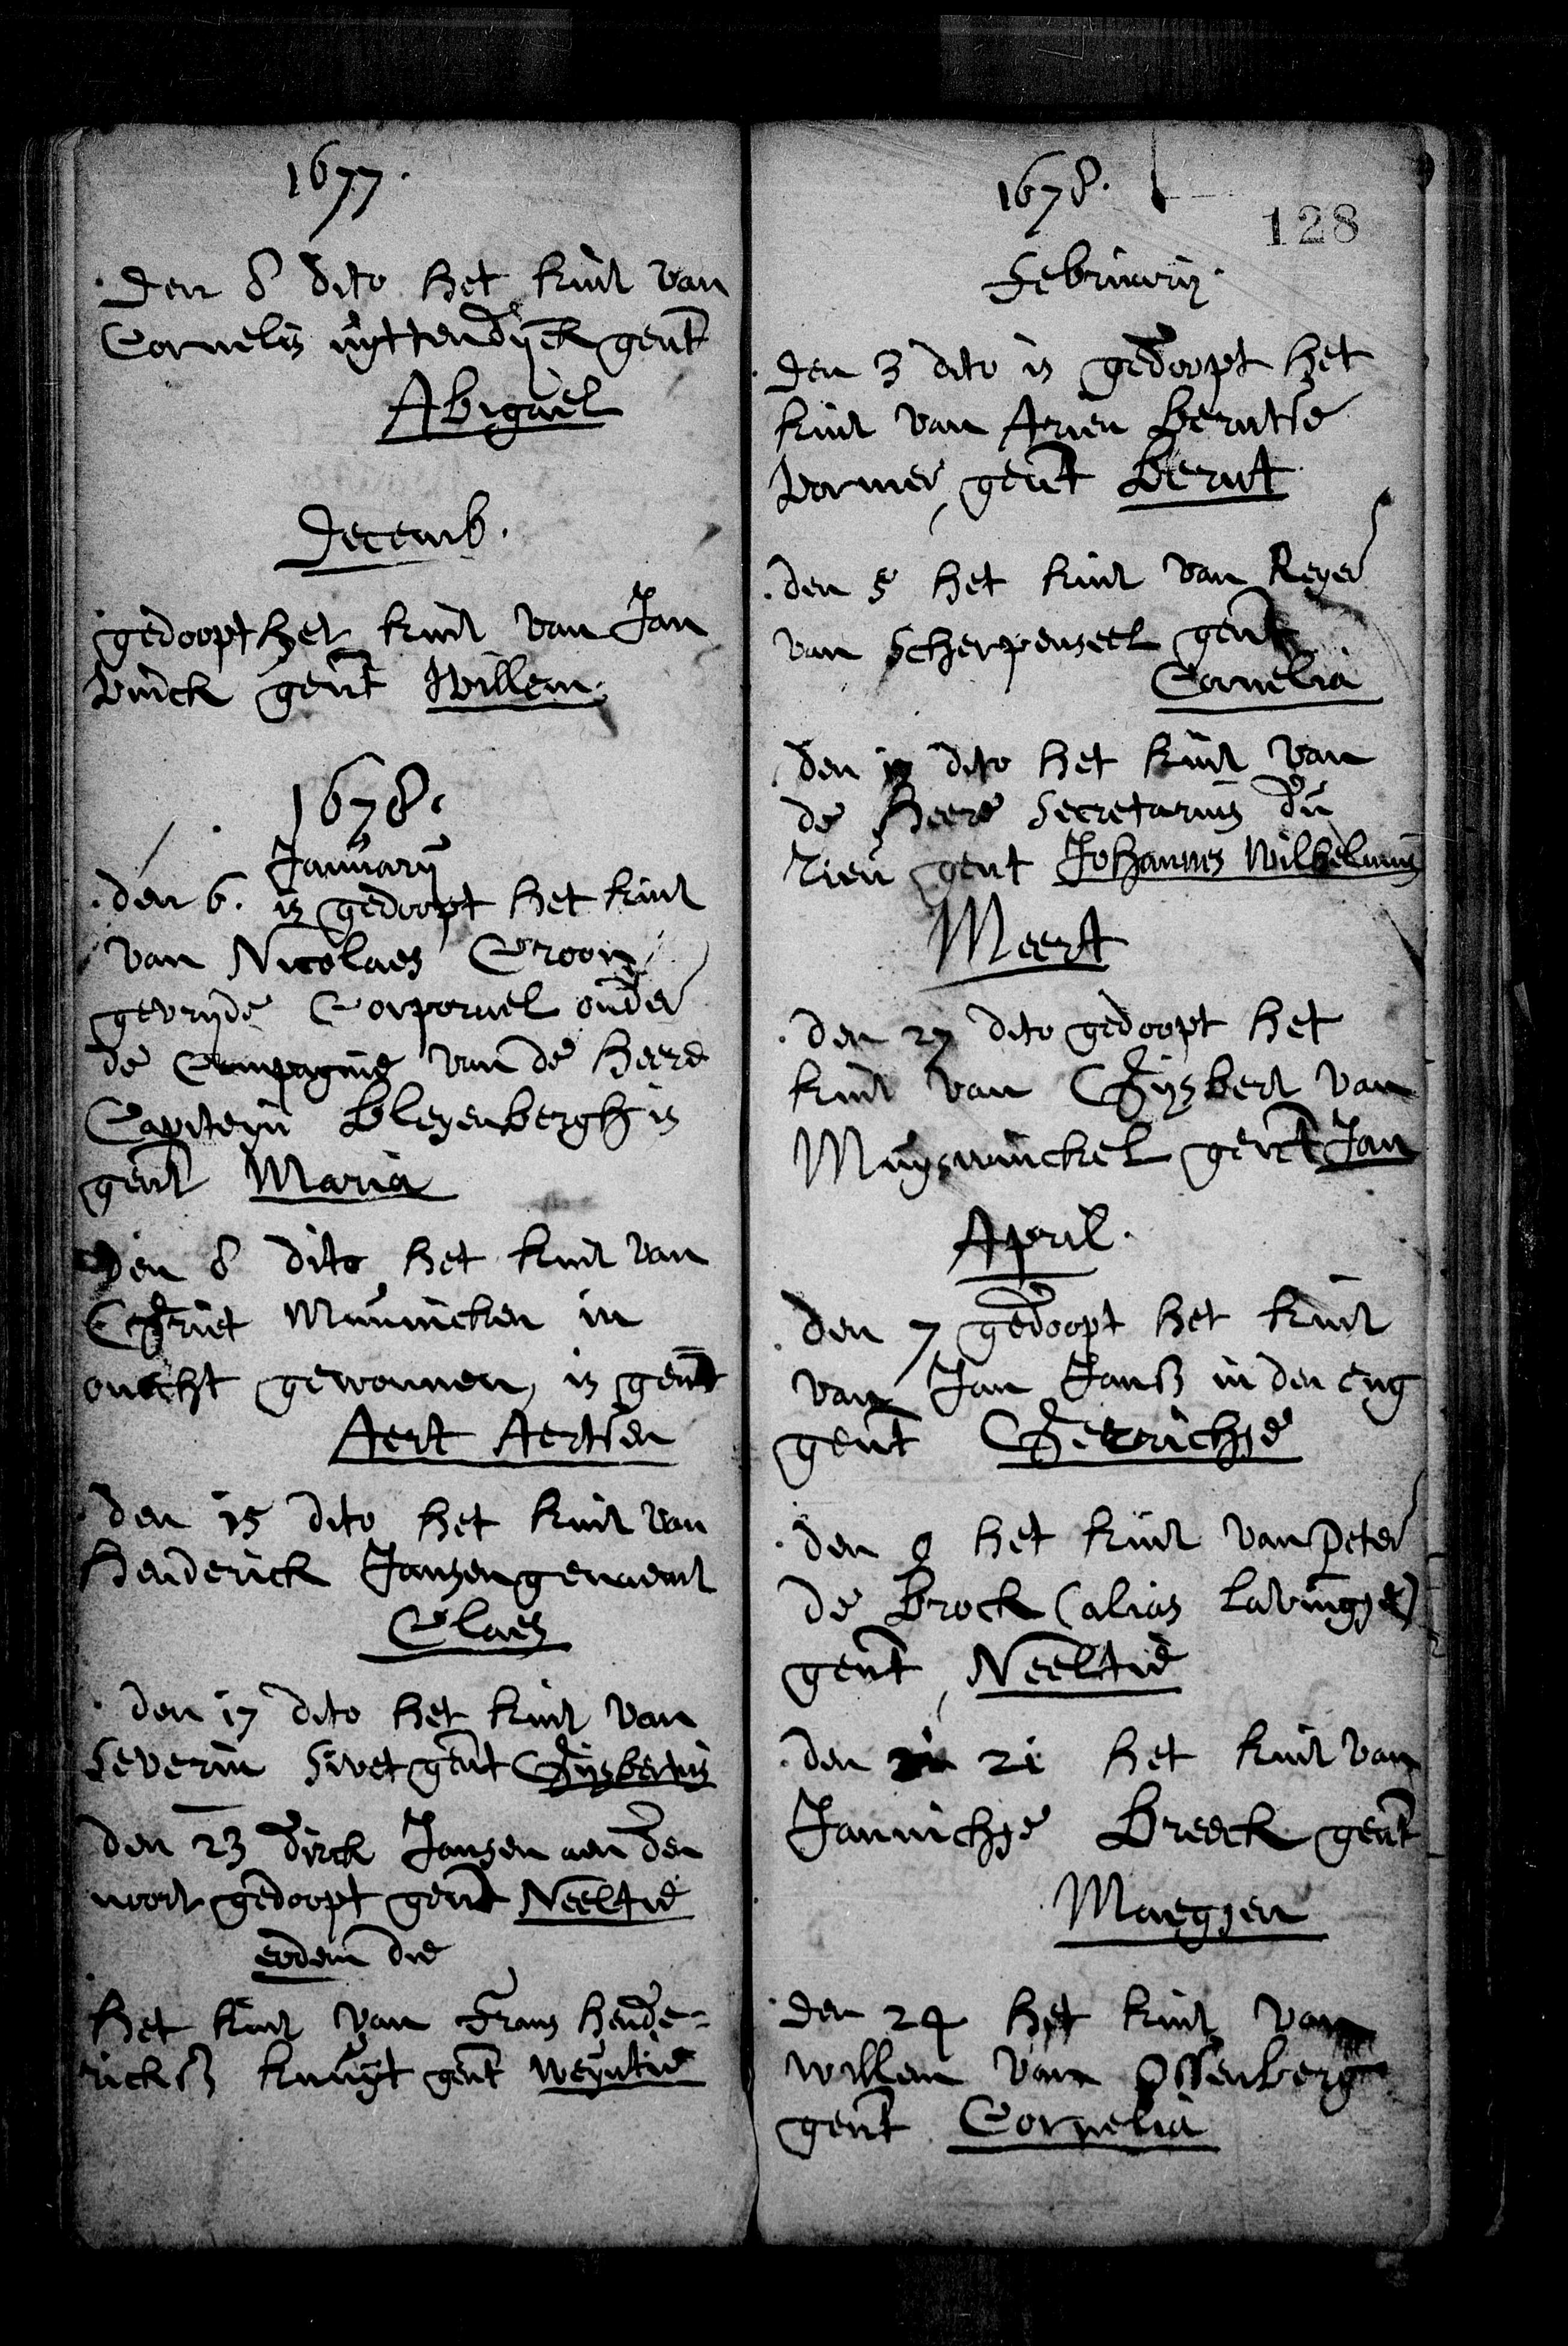 1677.
Den 8 dito het kint van
Cornelis uyttendyck gent
Abigael
Decemb.
gedoopt het kint van Jan
Vinck gent Willem.
1678.
January
den 6. is gedoopt het kint
van Nicolaes Croon
gevryde Corporael onder
de Compagnie van de Heere
Capiteyn Bleyenbergh is
gent Maria
Den 8 dito het kint van
Griet Munnicken in
onecht gewonnen, is gent
Aert Aertsen
den 15 dito het kint van
Henderick Jansen genaemt
Claes
den 17 dito het kint van
Severin Sivet gent Gijsbertus
den 23 Dirck Jansen aen den
noort gedoopt gent Neeltie
eodem die
het kint van Frans Hende-
ricksz knuyt gent Weyntie
1678.
128
February.
Den 3 dito is gedoopt het
kint van Arien Berntse
Vormer, gent Bernt
den 5 het kint van Reyer
van Scherpenseel gent
Cornelia
den dito het kint van
de Heere Secretarius du
Rieu gent Johannes Wilhelmus
Meert
den 27 dito gedoopt het
kint van Gijsbert van
Muyswinckel gent Jan
April.
den 7 gedoopt het kint
van Jan Jansz in den eng
gent Gerrichje
den 9 het kint van Peter
de Brock (alias Lavingje)
gent Neeltie
den 21 het kint van
Jannichje Breeck gent
Maegjen
Den 24 het kint van
Willem van Ossenberg
gent Cornelia